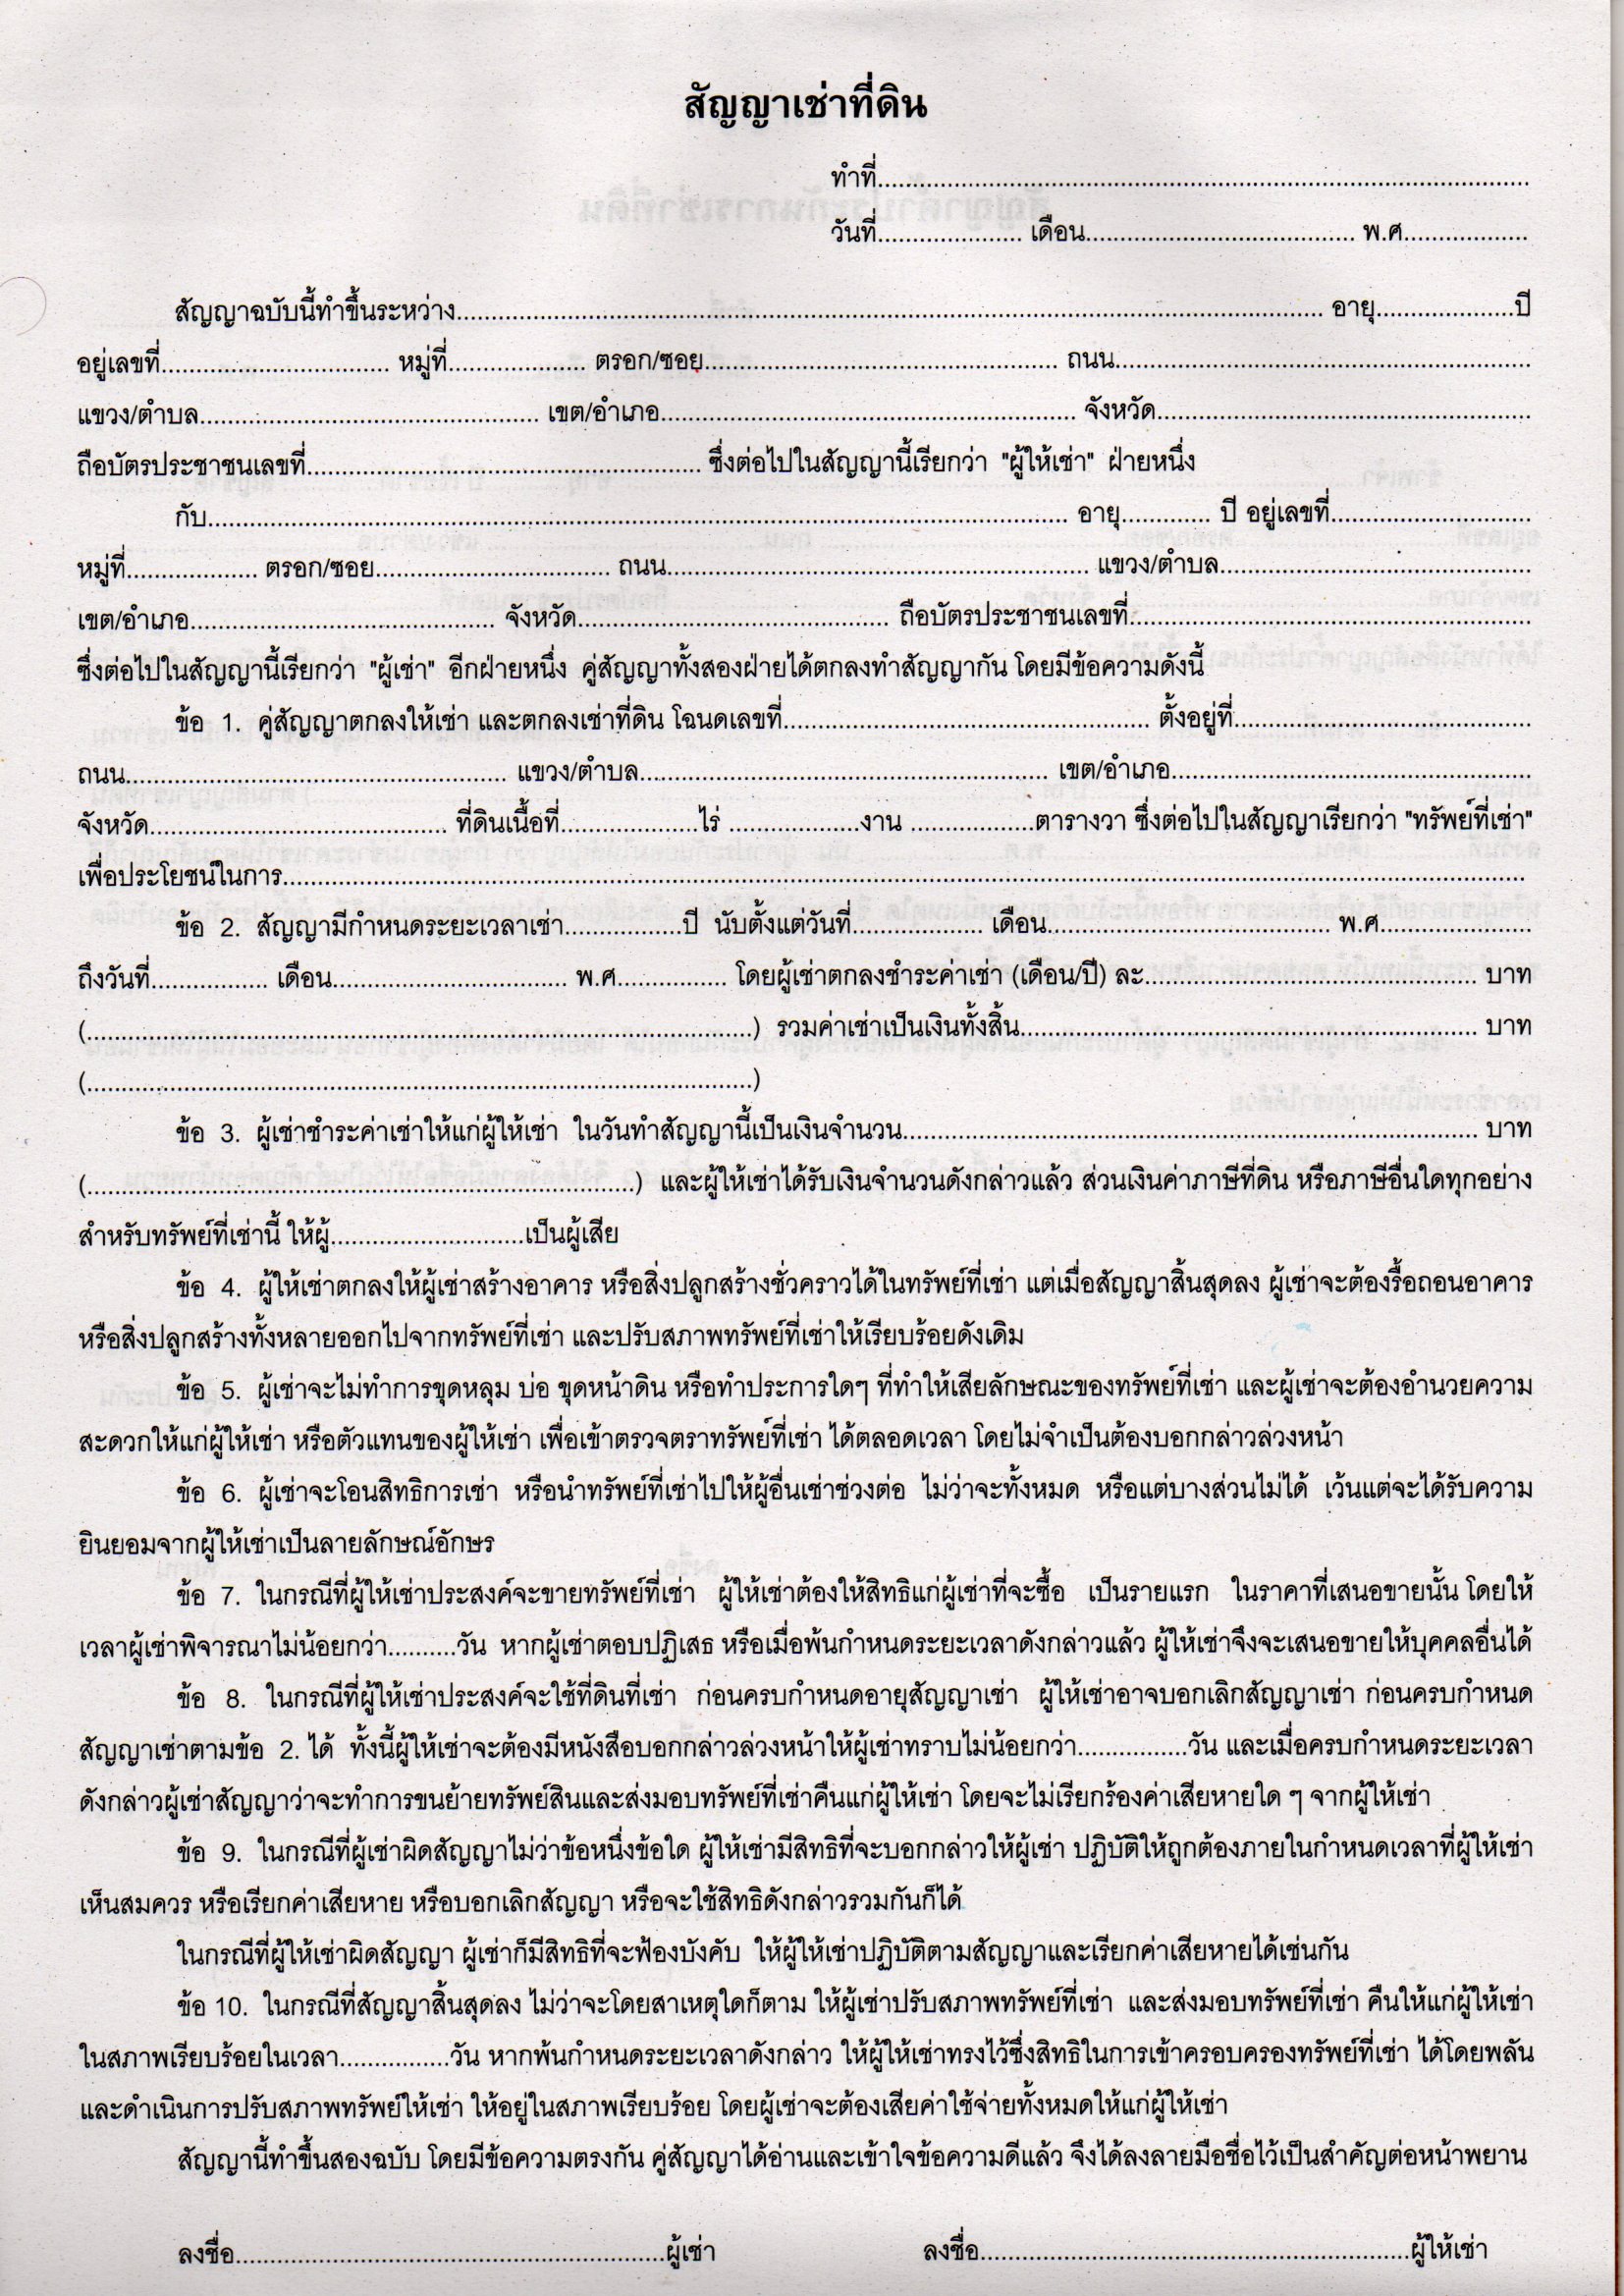 สัญญาเช่าที่ดิน
ทำที่..............................................................................................
วันที่..................... เดือน....................................... พ.ศ..................
สัญญาฉบับนี้ทำขึ้นระหว่าง............................................................................................................................. อายุ....................ปี
อยู่เลขที่................................. หมู่ที่.................... ตรอก/ซอย................................................... ถนน............................................................
แขวง/ตำบล................................................. เขต/อำเภอ............................................................ จังหวัด......................................................
ถือบัตรประชาชนเลขที่......................................................... ซึ่งต่อไปในสัญญานี้เรียกว่า "ผู้ให้เช่า" ฝ่ายหนึ่ง
กับ............................................................................................................................ อายุ............. ปี อยู่เลขที่.............................
หมู่ที่................... ตรอก/ซอย.................................. ถนน............................................................. แขวง/ตำบล.............................................
เขต/อำเภอ............................................ จังหวัด............................................. ถือบัตรประชาชนเลขที่..........................................................
ซึ่งต่อไปในสัญญานี้เรียกว่า "ผู้เช่า" อีกฝ่ายหนึ่ง คู่สัญญาทั้งสองฝ่ายได้ตกลงทำสัญญากัน โดยมีข้อความดังนี้
ข้อ 1. คู่สัญญาตกลงให้เช่า และตกลงเช่าที่ดิน โฉนดเลขที่..................................................... ตั้งอยู่ที่...........................................
ถนน....................................................... แขวง/ตำบล........................................................... เขต/อำเภอ....................................................
จังหวัด........................................... ที่ดินเนื้อที่....................ไร่ ...................งาน ..................ตารางวา ซึ่งต่อไปในสัญญาเรียกว่า "ทรัพย์ที่เช่า"
เพื่อประโยชน์ในการ...................................................................................................................................................................................
ข้อ 2. สัญญามีกำหนดระยะเวลาเช่า.................ปี นับตั้งแต่วันที่................... เดือน......................................... พ.ศ......................
ถึงวันที่................. เดือน.................................. พ.ศ................ โดยผู้เช่าตกลงชำระค่าเช่า (เดือน/ปี) ละ................................................ บาท
(................................................................................................) รวมค่าเช่าเป็นเงินทั้งสิ้น.................................................................. บาท
(................................................................................................)
ข้อ 3. ผู้เช่าชำระค่าเช่าให้แก่ผู้ให้เช่า ในวันทำสัญญานี้เป็นเงินจำนวน................................................................................... บาท
(...............................................................................) และผู้ให้เช่าได้รับเงินจำนวนดังกล่าวแล้ว ส่วนเงินค่าภาษีที่ดิน หรือภาษีอื่นใดทุกอย่าง
สำหรับทรัพย์ที่เช่านี้ ให้ผู้............................เป็นผู้เสีย
ข้อ 4. ผู้ให้เช่าตกลงให้ผู้เช่าสร้างอาคาร หรือสิ่งปลูกสร้างชั่วคราวได้ในทรัพย์ที่เช่า แต่เมื่อสัญญาสิ้นสุดลง ผู้เช่าจะต้องรื้อถอนอาคาร
หรือสิ่งปลูกสร้างทั้งหลายออกไปจากทรัพย์ที่เช่า และปรับสภาพทรัพย์ที่เช่าให้เรียบร้อยดังเดิม
ข้อ 5. ผู้เช่าจะไม่ทำการขุดหลุม บ่อ ขุดหน้าดิน หรือทำประการใดๆ ที่ทำให้เสียลักษณะของทรัพย์ที่เช่า และผู้เช่าจะต้องอำนวยความ
สะดวกให้แก่ผู้ให้เช่า หรือตัวแทนของผู้ให้เช่า เพื่อเข้าตรวจตราทรัพย์ที่เช่า ได้ตลอดเวลา โดยไม่จำเป็นต้องบอกกล่าวล่วงหน้า
ข้อ 6. ผู้เช่าจะโอนสิทธิการเช่า หรือนำทรัพย์ที่เช่าไปให้ผู้อื่นเช่าช่วงต่อ ไม่ว่าจะทั้งหมด หรือแต่บางส่วนไม่ได้ เว้นแต่จะได้รับความ
ยินยอมจากผู้ให้เช่าเป็นลายลักษณ์อักษร
ข้อ 7. ในกรณีที่ผู้ให้เช่าประสงค์จะขายทรัพย์ที่เช่า ผู้ให้เช่าต้องให้สิทธิแก่ผู้เช่าที่จะซื้อ เป็นรายแรก ในราคาที่เสนอขายนั้น โดยให้
เวลาผู้เช่าพิจารณาไม่น้อยกว่า..........วัน หากผู้เช่าตอบปฏิเสธ หรือเมื่อพ้นกำหนดระยะเวลาดังกล่าวแล้ว ผู้ให้เช่าจึงจะเสนอขายให้บุคคลอื่นได้
ข้อ 8. ในกรณีที่ผู้ให้เช่าประสงค์จะใช้ที่ดินที่เช่า ก่อนครบกำหนดอายุสัญญาเช่า ผู้ให้เช่าอาจบอกเลิกสัญญาเช่า ก่อนครบกำหนด
สัญญาเช่าตามข้อ 2. ได้ ทั้งนี้ผู้ให้เช่าจะต้องมีหนังสือบอกกล่าวล่วงหน้าให้ผู้เช่าทราบไม่น้อยกว่า................วัน และเมื่อครบกำหนดระยะเวลา
ดังกล่าวผู้เช่าสัญญาว่าจะทำการขนย้ายทรัพย์สินและส่งมอบทรัพย์ที่เช่าคืนแก่ผู้ให้เช่า โดยจะไม่เรียกร้องค่าเสียหายใด ๆ จากผู้ให้เช่า
ข้อ 9. ในกรณีที่ผู้เช่าผิดสัญญาไม่ว่าข้อหนึ่งข้อใด ผู้ให้เช่ามีสิทธิที่จะบอกกล่าวให้ผู้เช่า ปฏิบัติให้ถูกต้องภายในกำหนดเวลาที่ผู้ให้เช่า
เห็นสมควร หรือเรียกค่าเสียหาย หรือบอกเลิกสัญญา หรือจะใช้สิทธิดังกล่าวรวมกันก็ได้
ในกรณีที่ผู้ให้เช่าผิดสัญญา ผู้เช่าก็มีสิทธิที่จะฟ้องบังคับ ให้ผู้ให้เช่าปฏิบัติตามสัญญาและเรียกค่าเสียหายได้เช่นกัน
ข้อ 10. ในกรณีที่สัญญาสิ้นสุดลง ไม่ว่าจะโดยสาเหตุใดก็ตาม ให้ผู้เช่าปรับสภาพทรัพย์ที่เช่า และส่งมอบทรัพย์ที่เช่า คืนให้แก่ผู้ให้เช่า
ในสภาพเรียบร้อยในเวลา................วัน หากพ้นกำหนดระยะเวลาดังกล่าว ให้ผู้ให้เช่าทรงไว้ซึ่งสิทธิในการเข้าครอบครองทรัพย์ที่เช่า ได้โดยพลัน
และดำเนินการปรับสภาพทรัพย์ให้เช่า ให้อยู่ในสภาพเรียบร้อย โดยผู้เช่าจะต้องเสียค่าใช้จ่ายทั้งหมดให้แก่ผู้ให้เช่า
สัญญานี้ทำขึ้นสองฉบับ โดยมีข้อความตรงกัน คู่สัญญาได้อ่านและเข้าใจข้อความดีแล้ว จึงได้ลงลายมือชื่อไว้เป็นสำคัญต่อหน้าพยาน
ลงชื่อ..............................................................ผู้เช่า ลงชื่อ..............................................................ผู้ให้เช่า